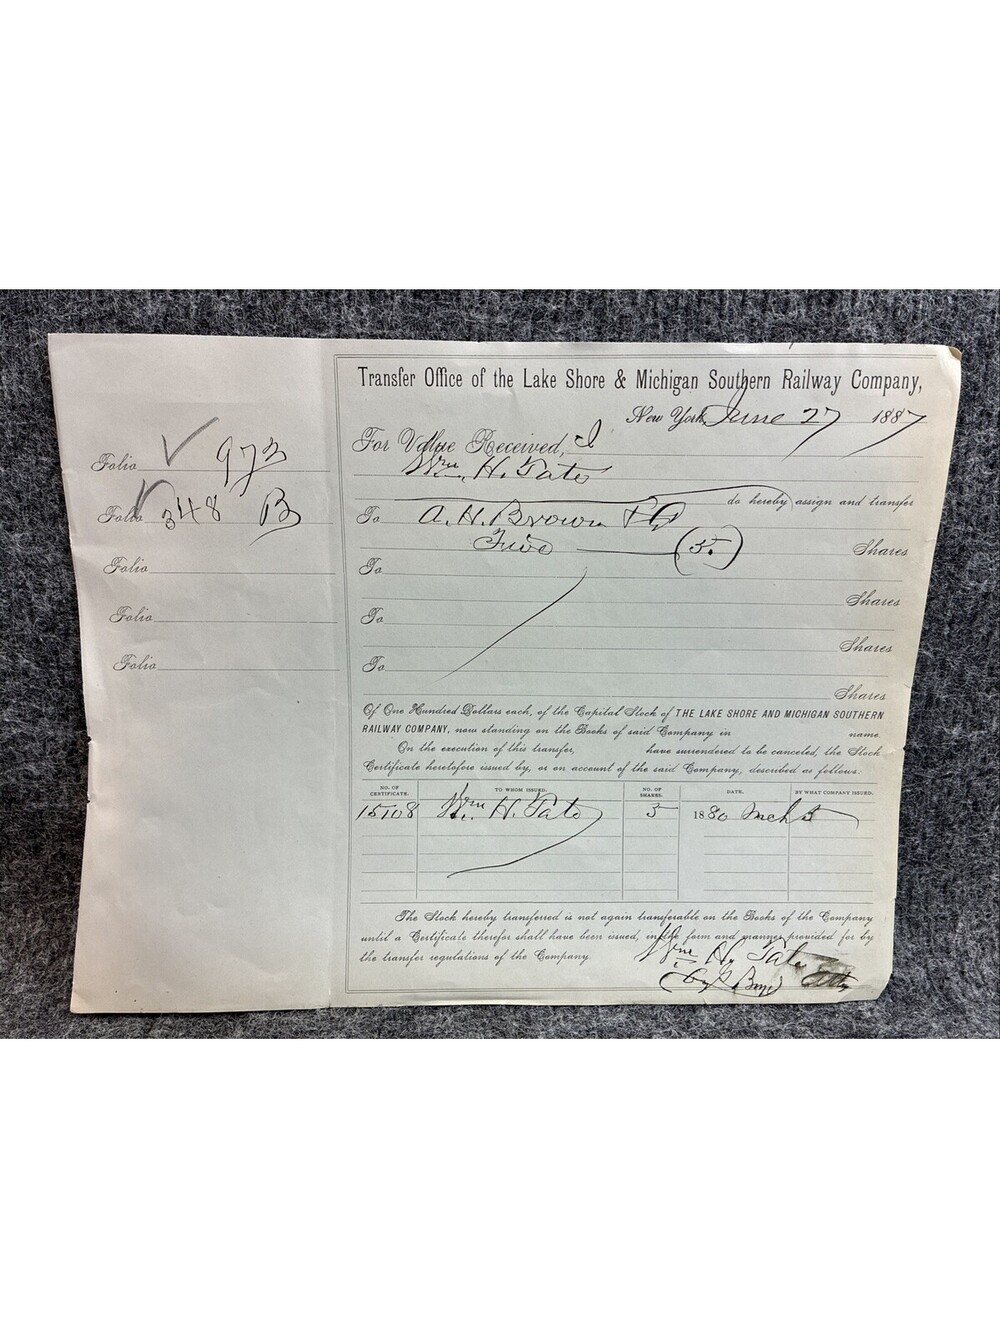 Transfer Office of the Lake Shore & Michigan Southern Railway Company,
New York, June 27 1887
For Value Received, I
Wm. H. Tate
do hereby assign and transfer
To A. H. Brown
Five (5.) Shares
To
Shares
To
Shares
To
Shares
Of One Hundred Dollars each, of the Capital Stock of THE LAKE SHORE AND MICHIGAN SOUTHERN
RAILWAY COMPANY, now standing on the Books of said Company in name.
On the execution of this transfer, have surrendered to be canceled, the Stock
Certificate heretofore issued by, or on account of the said Company, described as follows:
NO. OF CERTIFICATE. TO WHOM ISSUED. NO. OF SHARES. DATE. BY WHAT COMPANY ISSUED.
15108 Wm. H. Tate 5 1880 Mch 5
The Stock hereby transferred is not again transferable on the Books of the Company
until a Certificate therefor shall have been issued, in the form and manner provided for by
the transfer regulations of the Company.
Wm. H. Tate
Atty
Folio 973
Folio 348 B
Folio
Folio
Folio